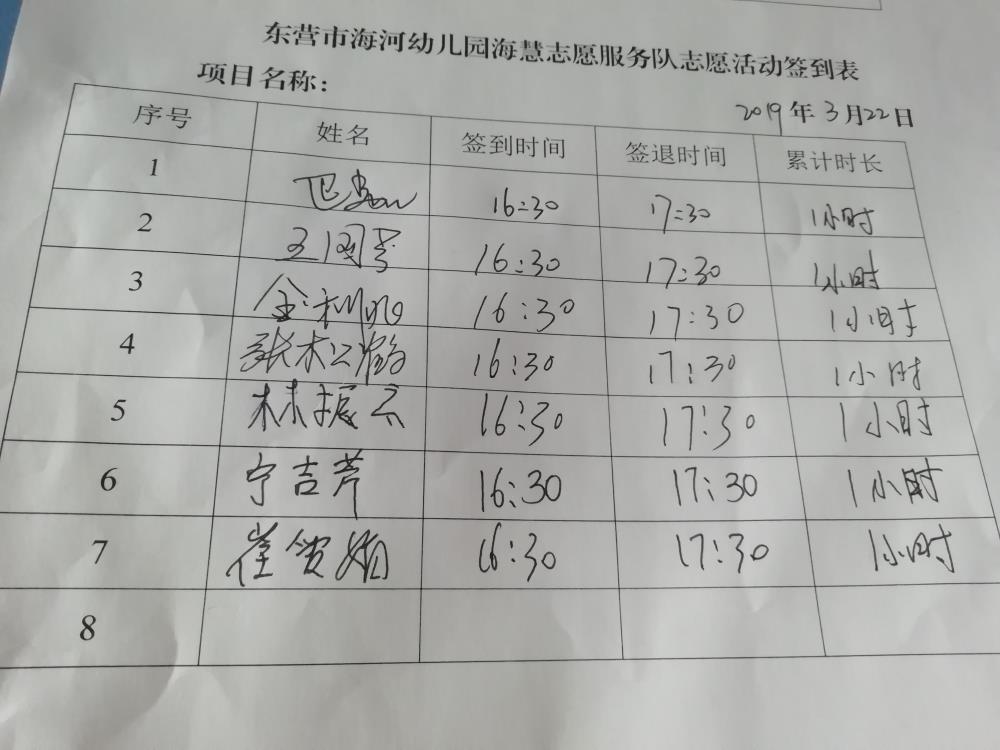 东营市海河幼儿园海慧志愿服务队志愿活动签到表
项目名称：
2019年3月22日
序号 姓名 签到时间 签退时间 累计时长
1 16:30 17:30 1小时
2 王国 16:30 17:30 1小时
3 金 16:30 17:30 1小时
4 张 16:30 17:30 1小时
5 林振 16:30 17:30 1小时
6 宁吉芹 16:30 17:30 1小时
7 崔 娟 16:30 17:30 1小时
8